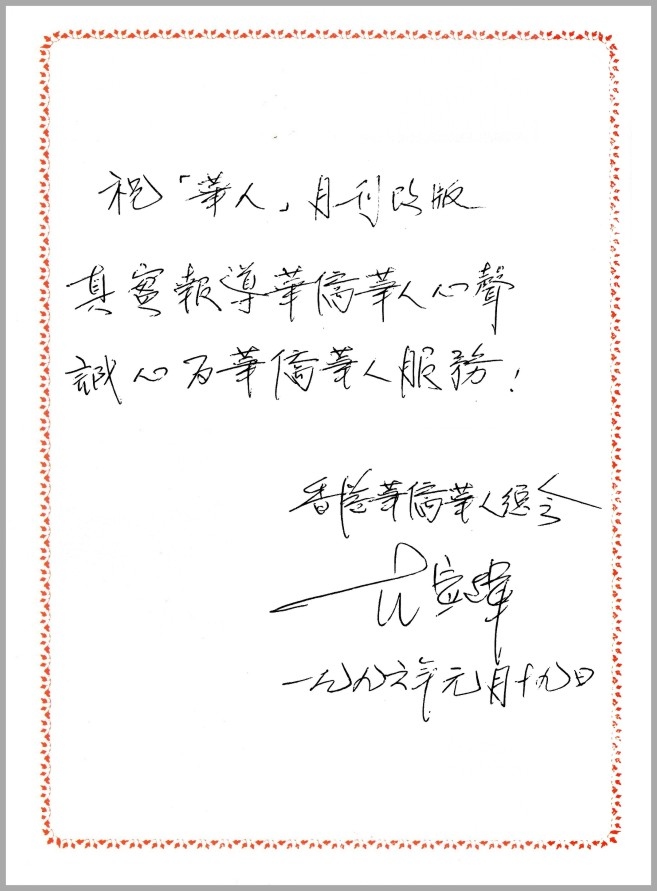 祝「華人」月刊改版
真實報導華僑華人心聲
誠心为華僑華人服務!
香港華僑華人總会
一九九六年元月十九日